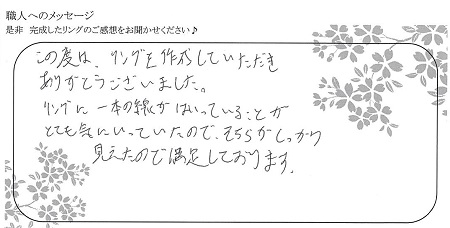 職人へのメッセージ
是非 完成したリングのご感想をお聞かせください♪
この度は、リングを作成していただき
ありがとうございました。
リングに一本の線がはいっていることが
とても気にいっていたので、そちらがしっかり
見えたので満足しております。